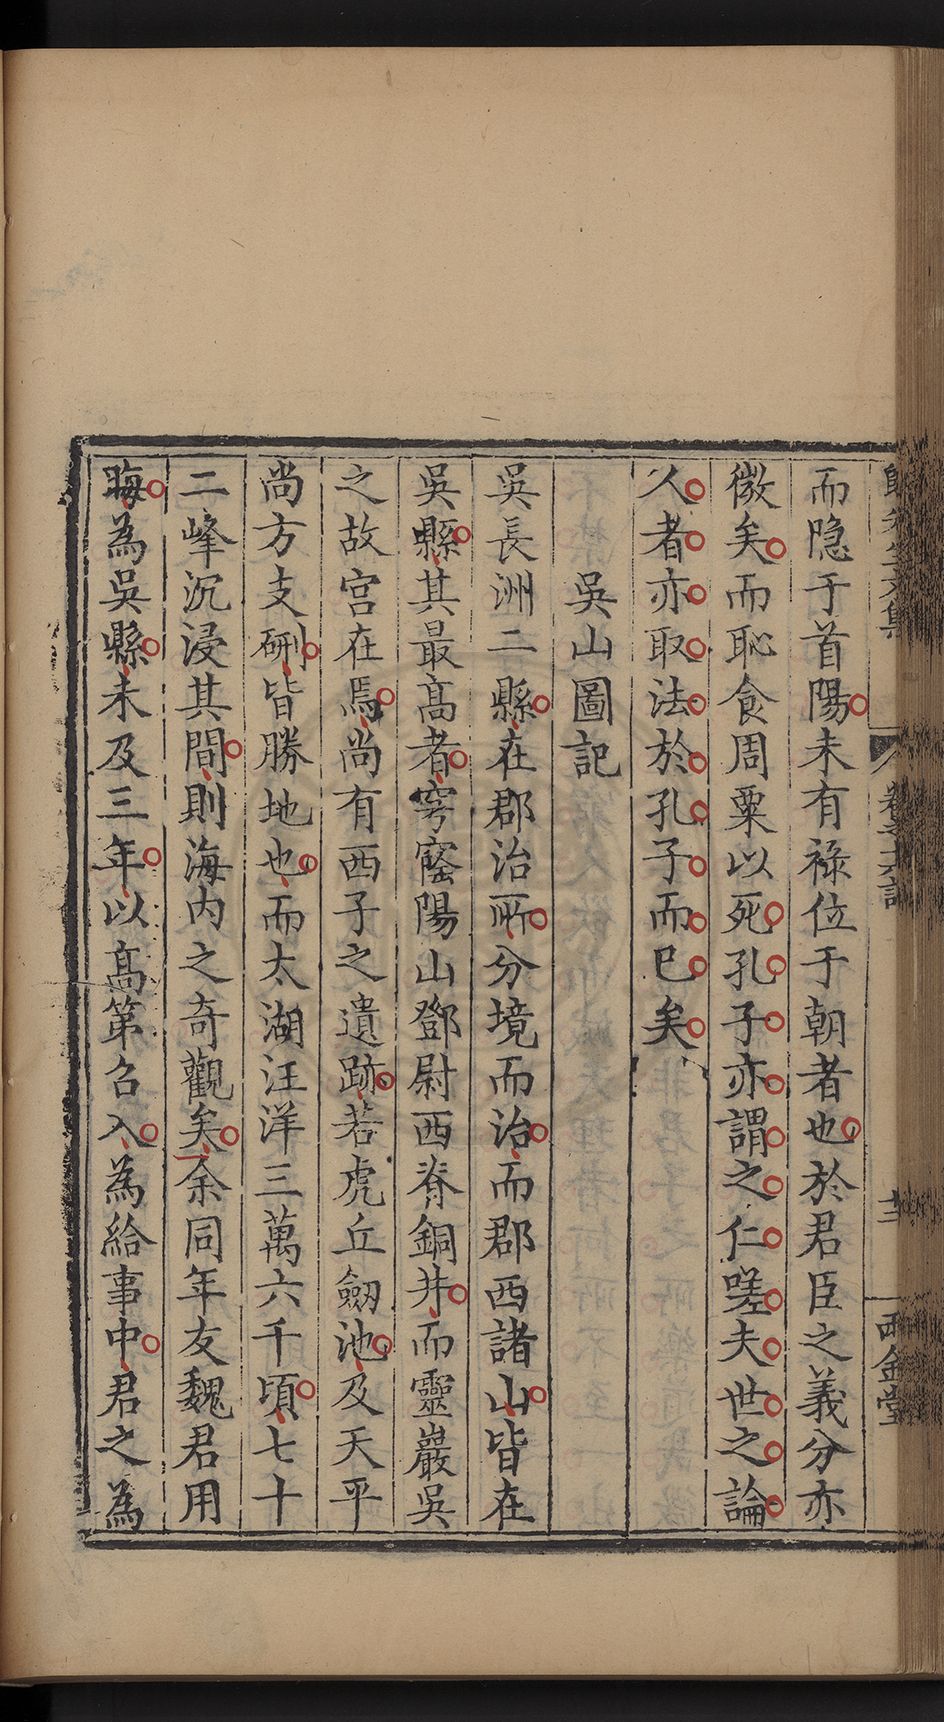 歸先生文集
卷之十六記
十三
雨金堂
而隐于首陽未有祿位于朝者也於君臣之義分亦
微矣而恥食周粟以死孔子亦謂之仁嗟夫世之論
久者亦取法於孔子而巳矣
吳山圖記
吳長洲二縣在郡治所分境而治而郡西諸山皆在
吳縣其最髙者穹窿陽山鄧尉西脊銅井而靈巖吳
之故宮在焉尚有西子之遺跡若虎丘劔池及天平
尚方支硎皆勝地也而太湖汪洋三萬六千頃七十
二峰沉浸其間則海内之奇觀矣余同年友魏君用
晦為吳縣未及三年以髙第召入為給事中君之為